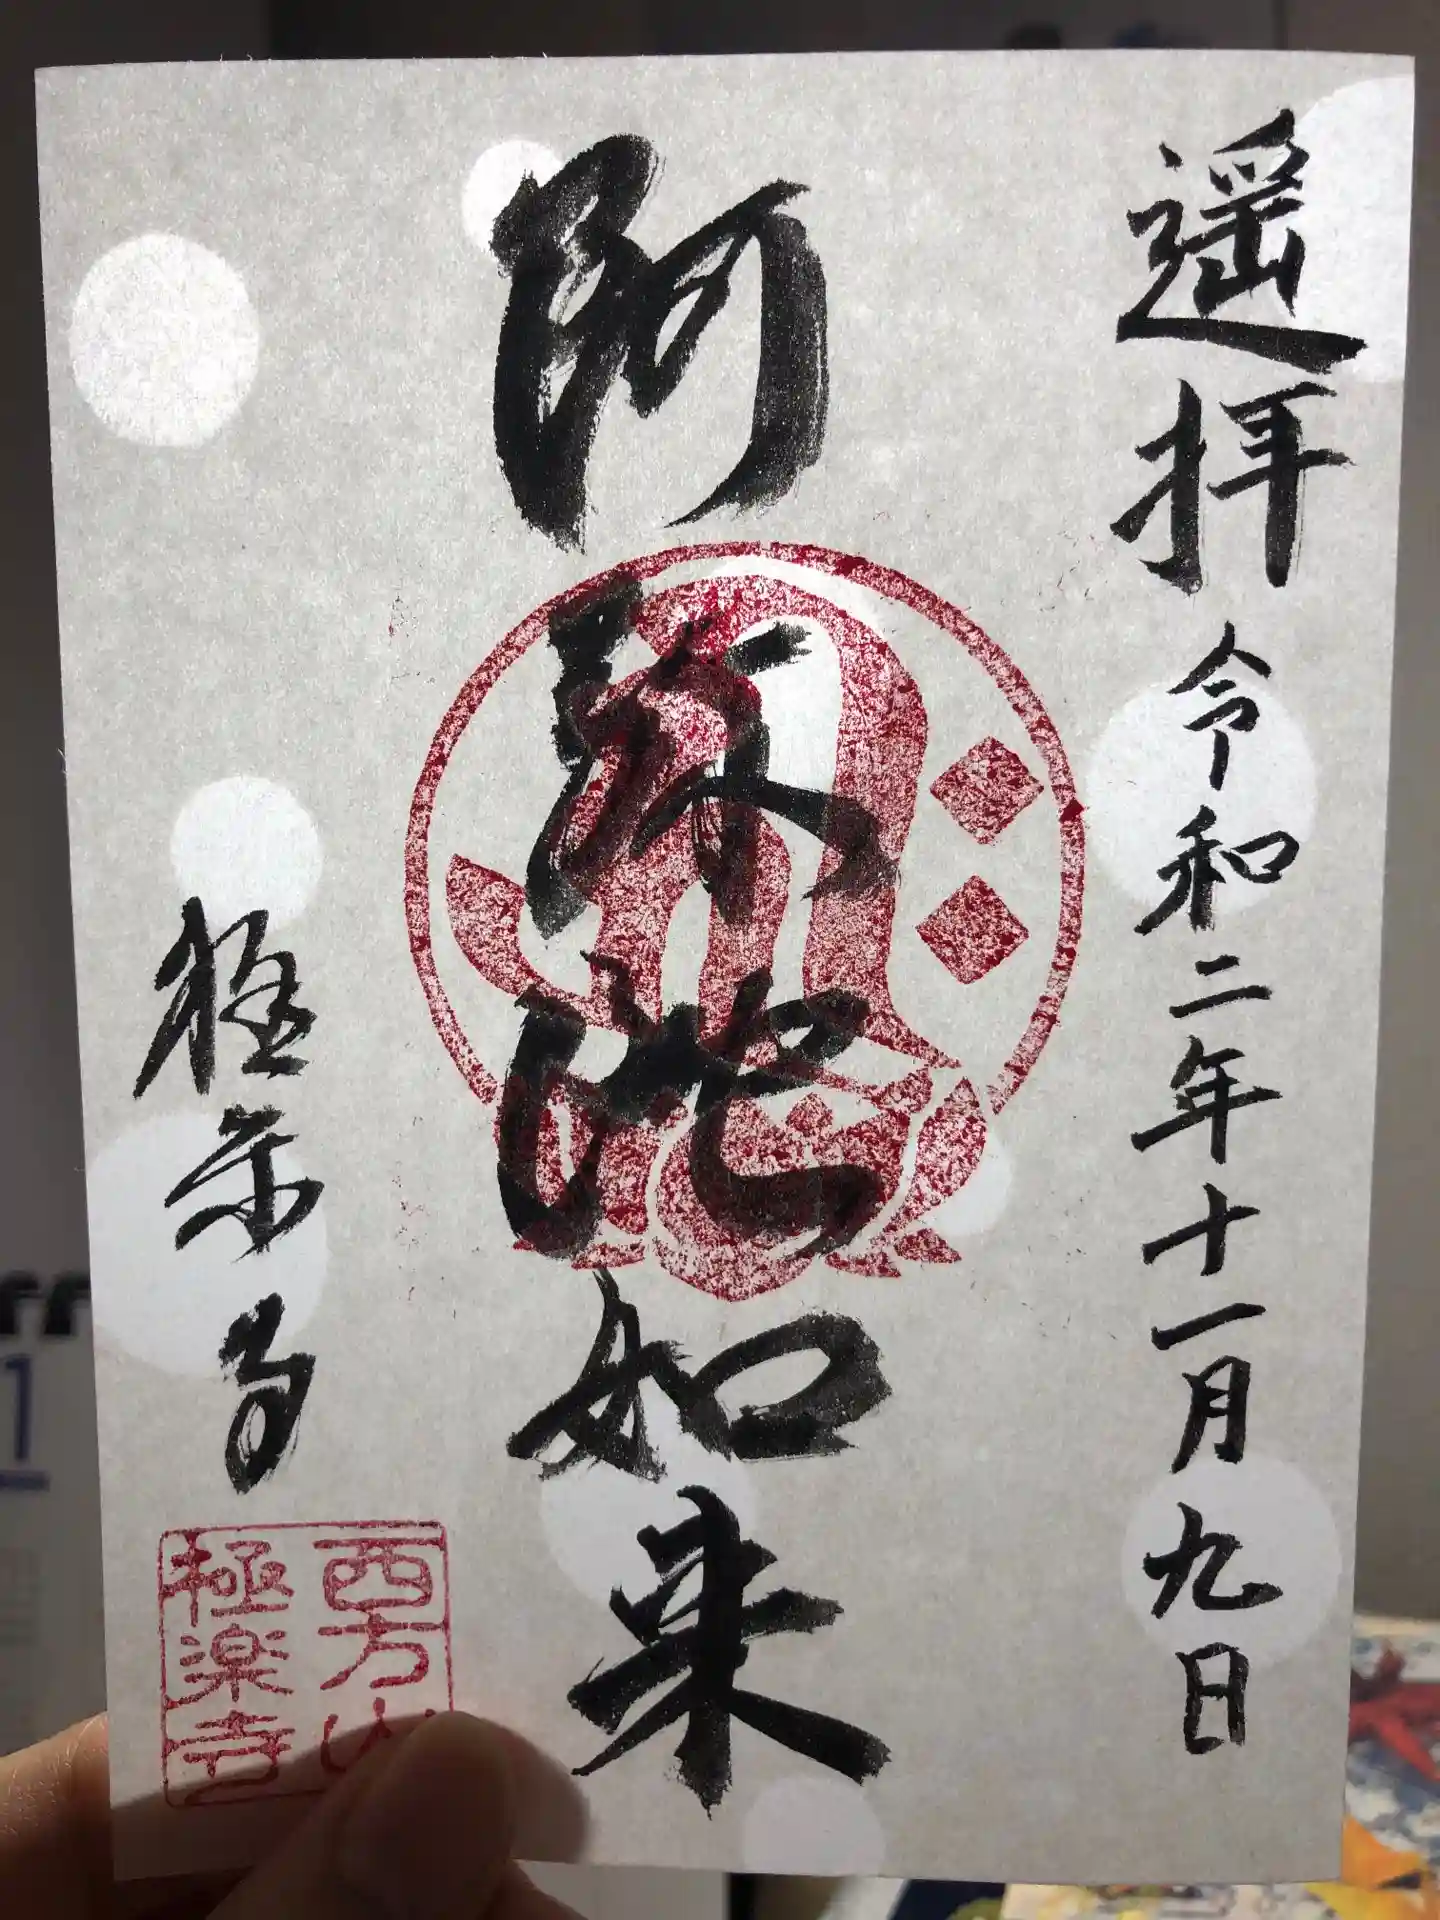 遥拝 令和二年十一月九日
阿弥陀如来
極楽寺
西方山
極楽寺
rr
1